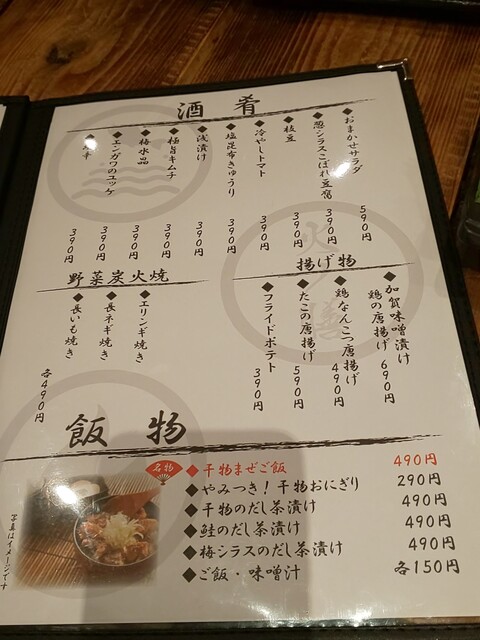 酒肴
◆おまかせサラダ 590円
◆葱シラスこぼれ豆腐 390円
◆枝豆 390円
◆冷やしトマト 390円
◆塩昆布きゅうり 390円
◆浅漬け 390円
◆極旨キムチ 390円
◆梅水晶 390円
◆エンガワのユッケ 390円
390円
揚げ物
◆加賀味噌漬け
鶏の唐揚げ 690円
◆鶏なんこつ唐揚げ 490円
◆たこの唐揚げ 590円
◆フライドポテト 390円
野菜炭火焼
◆エリンギ焼き
◆長ネギ焼き
◆長いも焼き
各490円
飯物
名物
◆干物まぜご飯 490円
◆やみつき!干物おにぎり 290円
◆干物のだし茶漬け 490円
◆鮭のだし茶漬け 490円
◆梅シラスのだし茶漬け 490円
◆ご飯・味噌汁 各150円
写真はイメージです